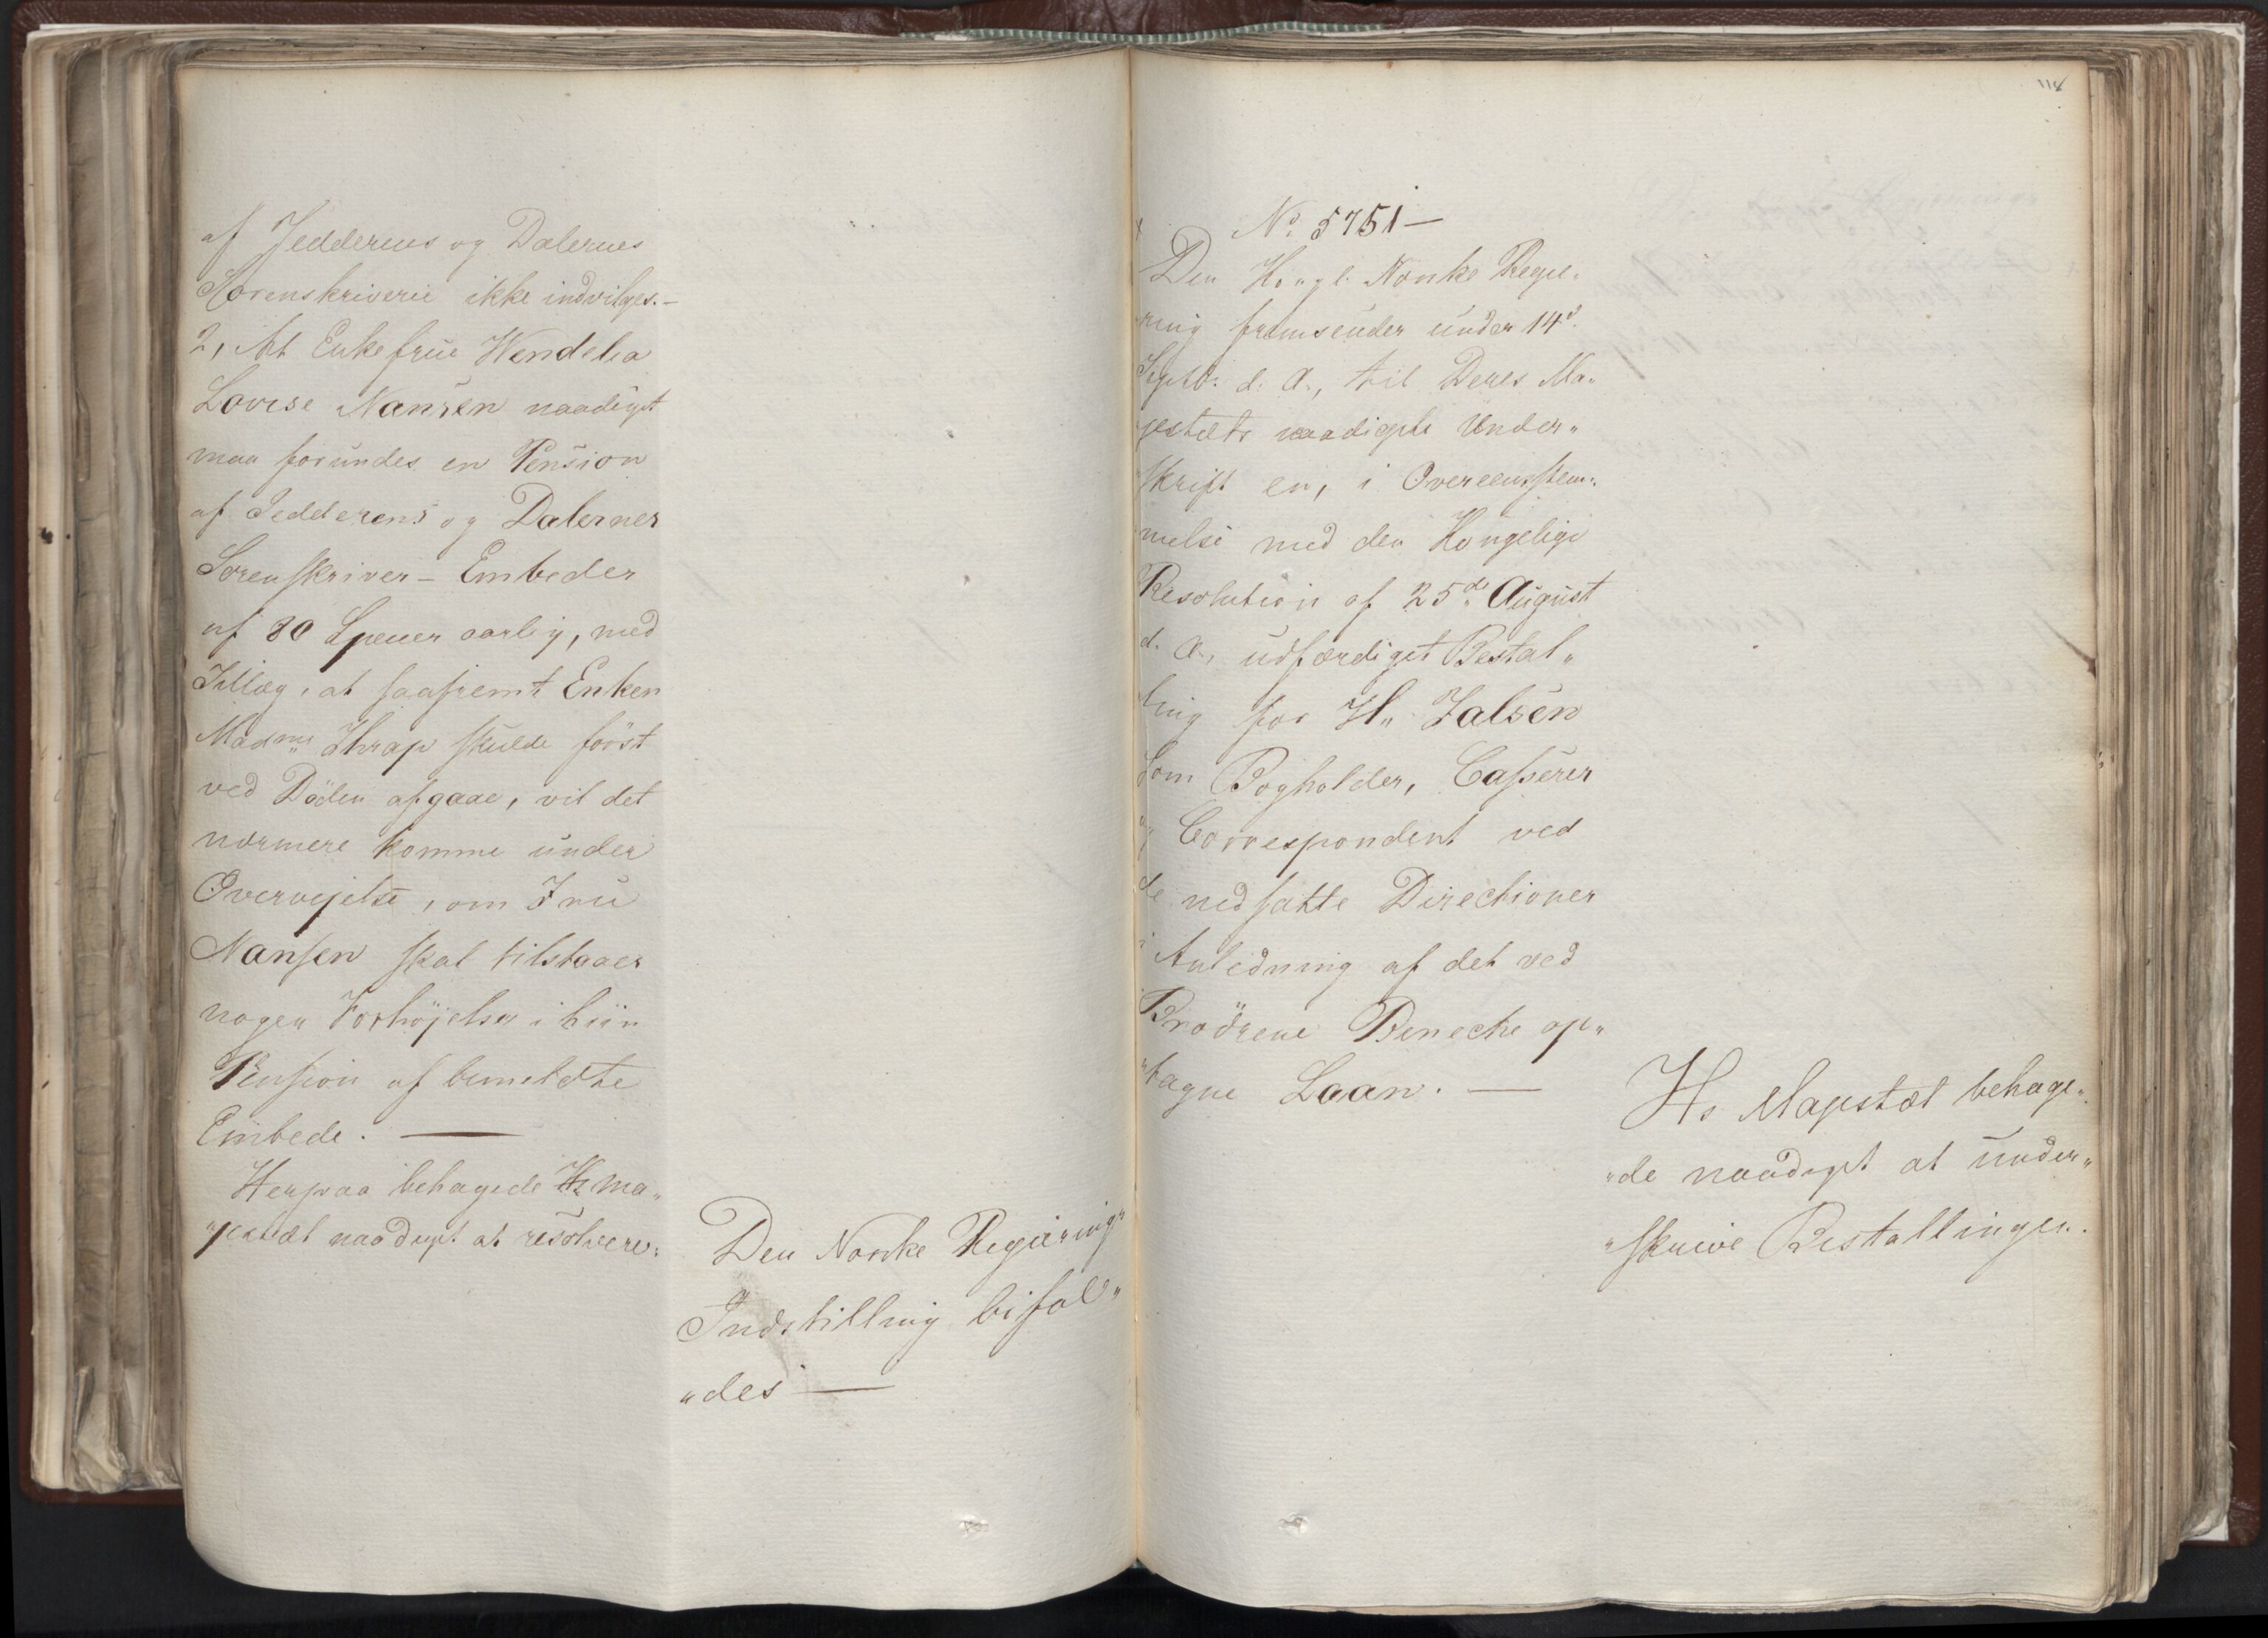 af Jedderens og Dalernes
Sorenskriverie ikke indvilges.-
2, At Enkefrue Wendelia
Lovise Nansen naadigst
maa forundes en Pension
af Jedderens og Dalernes
Sorenskriver-Embeder
af 80 Specier aarlig, med
Tillæg, at saafremt Enken
Madme Thrap skulde först
ved Döden afgaae, vil det
nærmere komme under
Overvejelse, om Fru
Nansen skal tilstaaes
nogen Forhöjelse i hiin
Pension af bemeldte
Embede. —
Herpaa behagede Hs Ma„
„jestæt naadigst at resolvere:
Den Norske Regierings
Indstilling bifal„
„des —
118
No. 5751 —
Den Kongl. Norske Regie„
ring fremsender under 14d.
Septbr. d. A., til Deres Ma„
jestæts naadigste Under„
skrift en, i Overeensstem„
melse med den Kongelige
Resolution af 25de August
d. A., udfærdiget Bestal„
ling for H„ Falsen
som Bogholder, Casserer
og Correspondent ved
de nedsatte Directioner
i Anledning af det ved
Brödrene Benecke op„
„tagne Laan. —
Hs Majestæt behage„
„de naadigst at under„
„skrive Bestallingen.